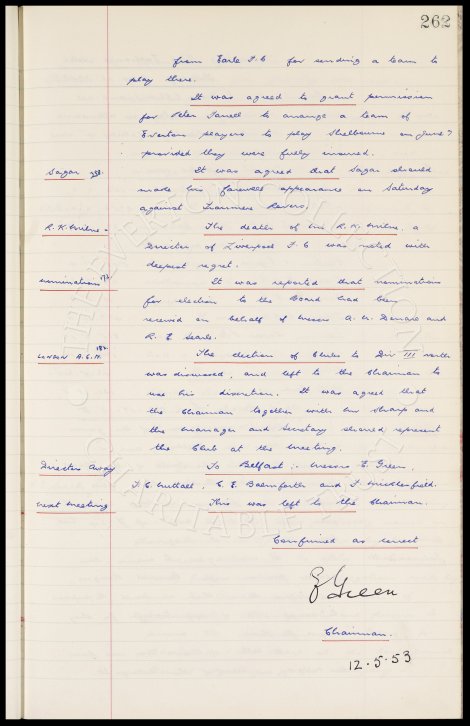 262
from Earle F.C for sending a team to
play there.
It was agreed to grant permission
for Peter Farrell to arrange a team of
Everton players to play Shelbourne on June 7
provided they were fully insured.
Sagar 258. It was agreed that Sagar should
make his farewell appearance on Saturday
against Tranmere Rovers.
R.K. Milne - The death of Mr R.K. Milne, a
Director of Liverpool F.C was noted with
deepest regret.
nominations It was reported that nominations
for election to the Board had been
received on behalf of Messrs A. W.
R. E. Searle.
London A.G.M. The election of Clubs to Div III north
was discussed, and left to the Chairman to
use his discretion. It was agreed that
the Chairman together with Mr Sharp and
the manager and Secretary should represent
the Club at the meeting.
Directors Away To Belfast :- Messrs E. Green,
T.C. Nuttall, C.E. Balmforth and F. Micklesfield.
next meeting This was left to the Chairman.
Confirmed as correct
E Green
Chairman.
12.5.53
THE EVERTON COLLECTION
CHARITABLE TRUST